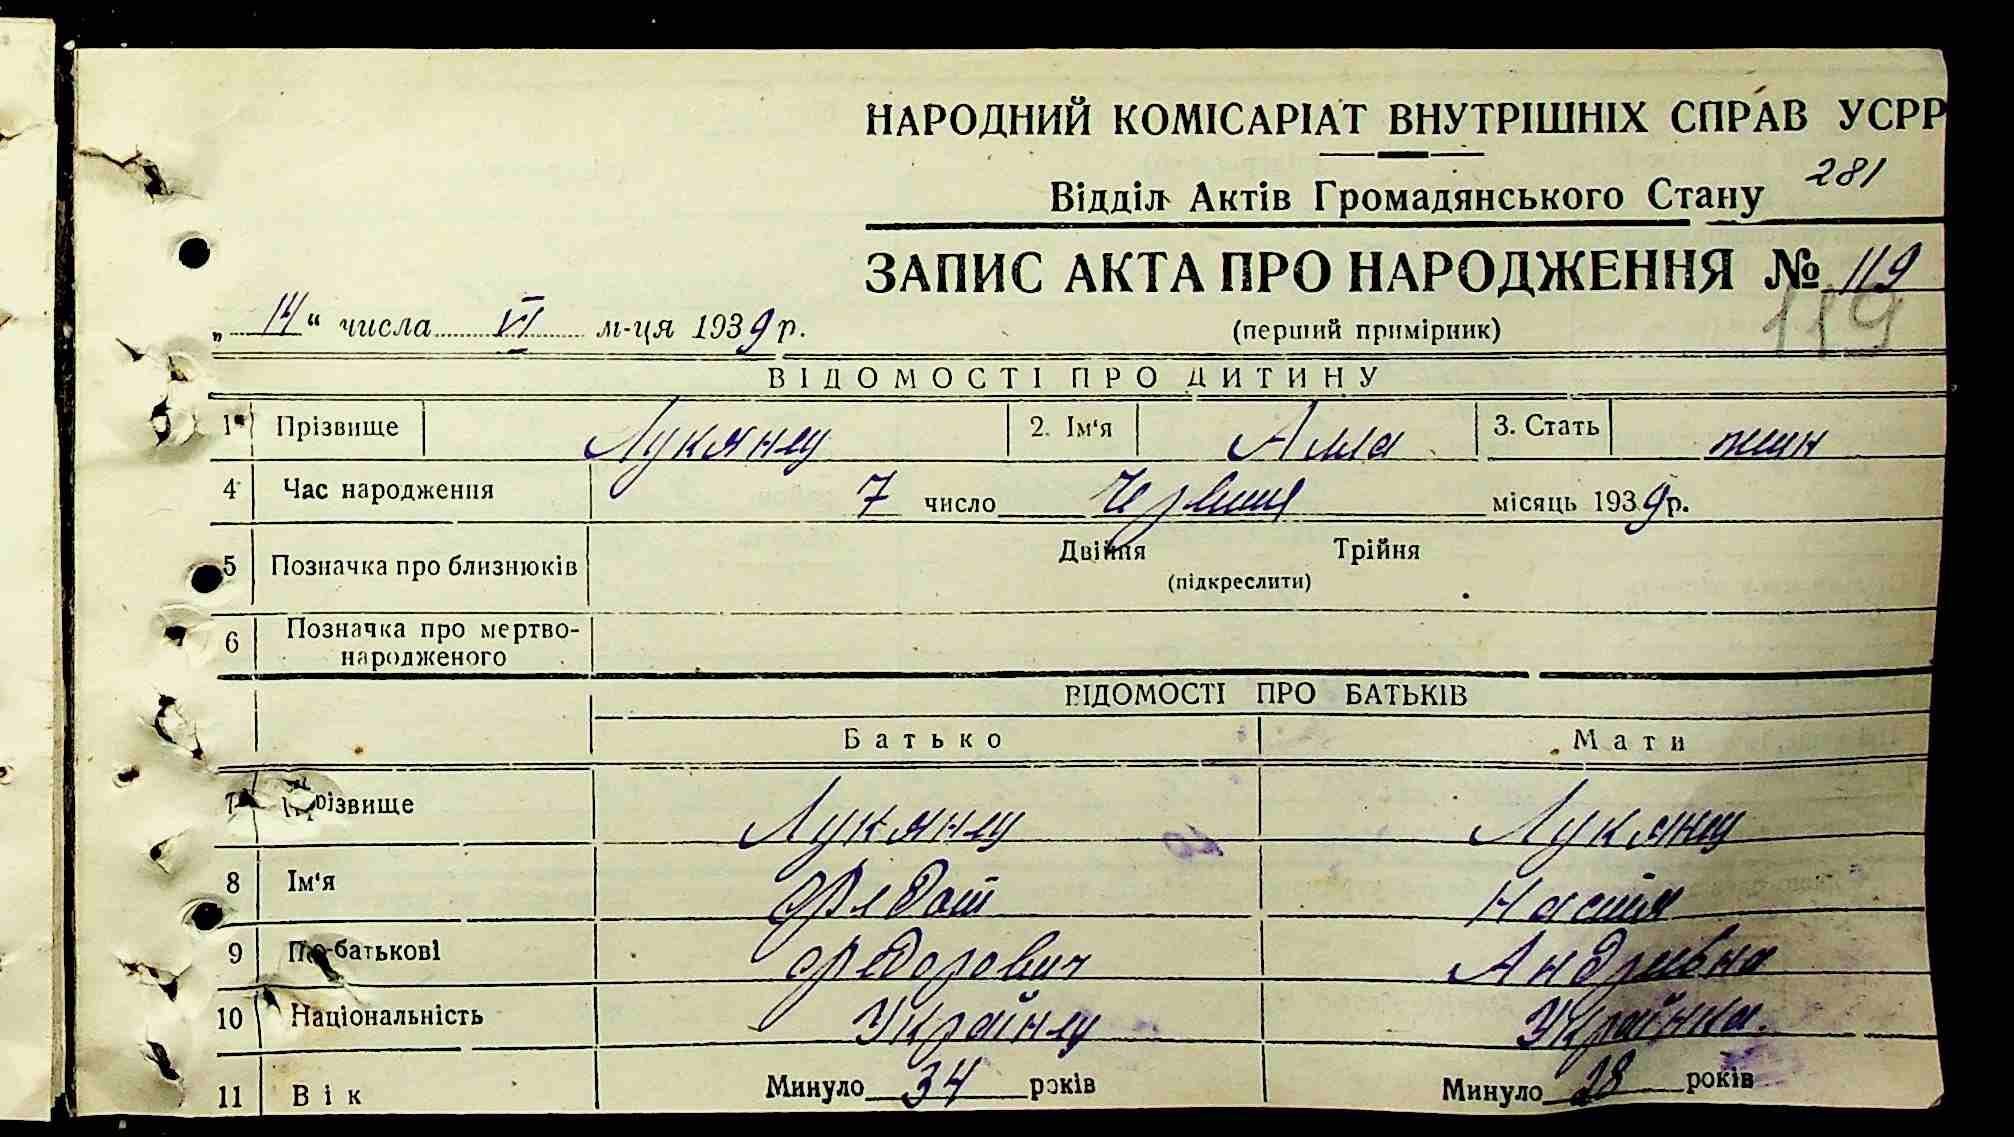 НАРОДНИЙ КОМІСАРІАТ ВНУТРІШНІХ СПРАВ УСРР
281
Відділ Актів Громадянського Стану
ЗАПИС АКТА ПРО НАРОДЖЕННЯ № 119
„14“ числа VI м-ця 1939 р.
(перший примірник)
119
ВІДОМОСТІ ПРО ДИТИНУ
1 Прізвище Лукянец 2. Ім'я Алла 3. Стать жин
4 Час народження 7 число Червня місяць 1939 р.
5 Позначка про близнюків Двійня Трійня
(підкреслити)
6 Позначка про мертво-
народженого
ВІДОМОСТІ ПРО БАТЬКІВ
Батько Мати
7 Прізвище Лукянец Лукянец
8 Ім'я Федот Настія
9 По-батькові Федорович Андріевна
10 Національність Українец Українка.
11 Вік Минуло 34 років Минуло 28 років